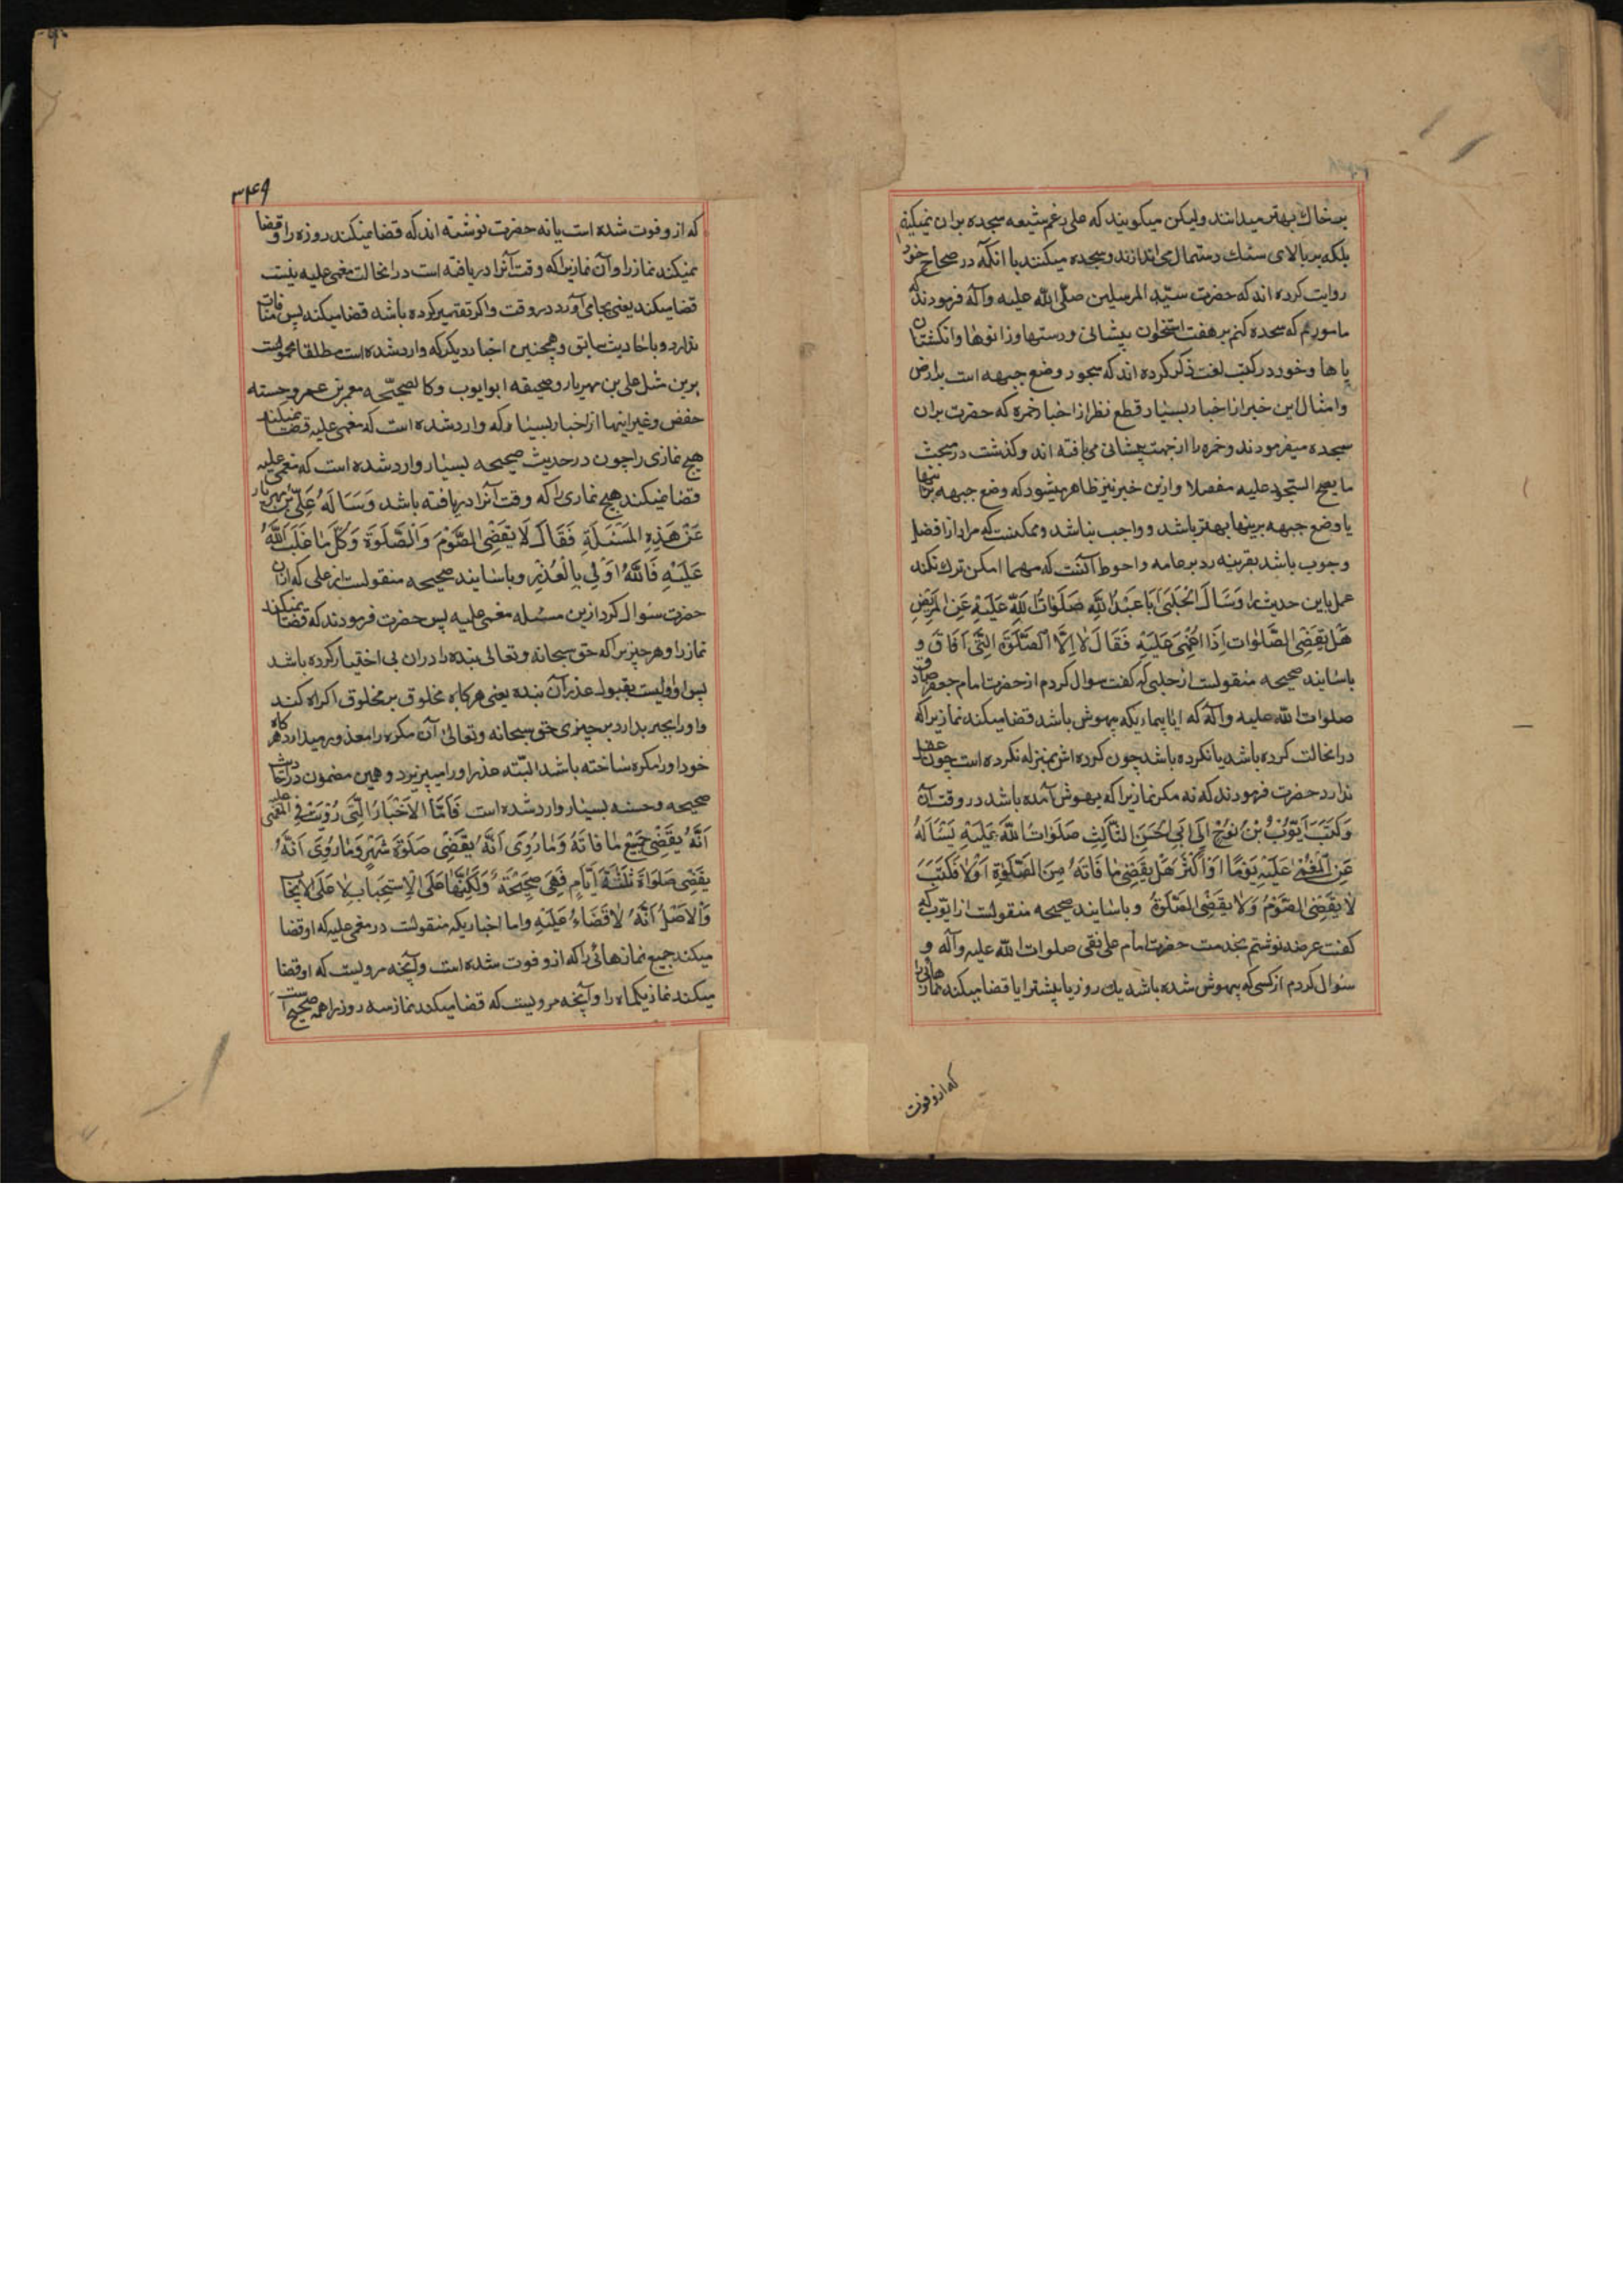 بر خاك بهتر میدانند ولیکن میکویند که علی رغم شیعه سجده بران نمیکنیم
بلکه بر بالای سنك دستمال می اندازند و سجده میکنند با انکه در صحاح خود
روایت کرده اند که حضرت سید المرسلین صلّی الله علیه وآله فرمودند که
مامورم که سجده کنم بر هفت استخوان پیشانی و دستها و زانوها و انکشتان
پاها و خود در کتب لغت ذکر کرده اند که سجود وضع جبهه است بر ارض
و امثال این خبر از اخبار بسیار قطع نظر از اخبار خمره که حضرت بران
سجده میفرمودند و خمره را از جهت پیشانی می بافته اند و کذشت در مبحث
ما یصح السجود علیه مفصلا و ازین خبر نیز ظاهر میشود که وضع جبهه بر اینها
یا وضع جبهه برینها بهتر باشد و واجب نباشد و ممکنست که مراد از افضل
وجوب باشد بقرینه رد بر عامه و احوط آنست که مهما امکن ترك نکند
عمل باین حدیث را وَسَاَلَ الْحَلَبِیُّ اَبَا عَبْدِ اللّٰهِ صَلَوَاتُ اللّٰهِ عَلَیْهِ عَنِ الْمَرِیْضِ
هَلْ یَقْضِی الصَّلَوَاتِ اِذَا اُغْمِیَ عَلَیْهِ فَقَالَ لَا اِلَّا الصَّلٰوةَ الَّتِی اَفَاقَ و
باسانید صحیحه منقولست از حلبی که کفت سوال کردم از حضرت امام جعفر صادق
صلوات الله علیه وآله که ایا بیماریکه بیهوش باشد قضا میکند نمازیرا که
در انحالت کرده باشد یا نکرده باشد چون کرده اش بمنزله نکرده است چون عقل
ندارد حضرت فرمودند که نه مکر نمازیرا که بهوش آمده باشد در وقت آن
وَکَتَبَ اَیُّوْبُ بْنُ نُوْحٍ اِلٰی اَبِی الْحَسَنِ الثَّالِثِ صَلَوَاتُ اللّٰهِ عَلَیْهِ یَسْاَلُهُ
عَنِ الْمُغْمٰی عَلَیْهِ یَوْمًا اَوْ اَکْثَرَ هَلْ یَقْضِی مَا فَاتَهُ مِنَ الصَّلٰوةِ اَوْ لَا فَکَتَبَ
لَا یَقْضِی الصَّوْمَ وَلَا یَقْضِی الصَّلٰوةَ و باسانید صحیحه منقولست از ایوب که
کفت عرضه نوشتم بخدمت حضرت امام علی نقی صلوات الله علیه وآله و
سوال کردم از کسی که بیهوش شده باشد یك روز یا بیشتر ایا قضا میکند نمازهائی را
که ازو فوت
۳۴۹
که ازو فوت شده است یا نه حضرت نوشته اند که قضا نمیکند روزه را و قضا
نمیکند نماز را و آن نمازیرا که وقت آنرا دریافته است در انحالت مغمی علیه نیست
قضا میکند یعنی بجای آورد در وقت و اکر تقصیر کرده باشد قضا میکند پس منافات
ندارد و با حادیث سابق و همچنین اخبار دیکر که وارد شده است مطلقا محمولست
برین مثل علی بن مهزیار و صحیحه ابو ایوب و کالصحیحه معمر بن عمر و حسنه
حفص و غیر اینها از اخبار بسیار که وارد شده است که مغمی علیه قضا نمیکند
هیچ نمازی را چون در حدیث صحیحه بسیار وارد شده است که مغمی علیه
قضا نمیکند هیچ نمازی را که وقت آنرا دریافته باشد وَسَاَلَهُ عَلِیُّ بْنُ مهزیار
عَنْ هَذِهِ الْمَسْئَلَةِ فَقَالَ لَا یَقْضِی الصَّوْمَ وَالصَّلٰوةَ وَکُلُّ مَا غَلَبَ اللّٰهُ
عَلَیْهِ فَاللّٰهُ اَوْلٰی بِالْعُذْرِ و باسانید صحیحه منقولست از علی که ازان
حضرت سئوال کرد ازین مسئله مغمی علیه پس حضرت فرمودند که قضا نمیکند
نماز را و هر چیزیرا که حق سبحانه وتعالی بنده را دران بی اختیار کرده باشد
پس او اولیست بقبول عذر آن بنده یعنی هر کاه مخلوق بر مخلوق اکراه کند
و او را بجبر بدارد بر چیزی حق سبحانه وتعالی آن مکره را معذور میدارد هر کاه
خود او را مکره ساخته باشد البته عذر او را میپذیرد و همین مضمون در احادیث
صحیحه وحسنه بسیار وارد شده است فَاَمَّا الْاَخْبَارُ الَّتِی رُوِیَتْ فِی الْمُغْمٰی علیه
اَنَّهُ یَقْضِی جَمِیْعَ مَا فَاتَهُ وَمَا رُوِیَ اَنَّهُ یَقْضِی صَلٰوةَ شَهْرٍ وَمَا رُوِیَ اَنَّهُ
یَقْضِی صَلَوَاةَ ثَلٰثَةِ اَیَّامٍ فَهِیَ صَحِیْحَةٌ وَلَکِنَّهَا عَلَی الْاِسْتِحْبَابِ لَا عَلَی الْاِیجَابِ
وَالْاَصْلُ اَنَّهُ لَا قَضَاءَ عَلَیْهِ و اما اخباریکه منقولست در مغمی علیه که او قضا
میکند جمیع نمازهائی را که ازو فوت شده است و آنچه مرویست که او قضا
میکند نماز یکماه را و آنچه مرویست که قضا میکند نماز سه روز را همه صحیح است